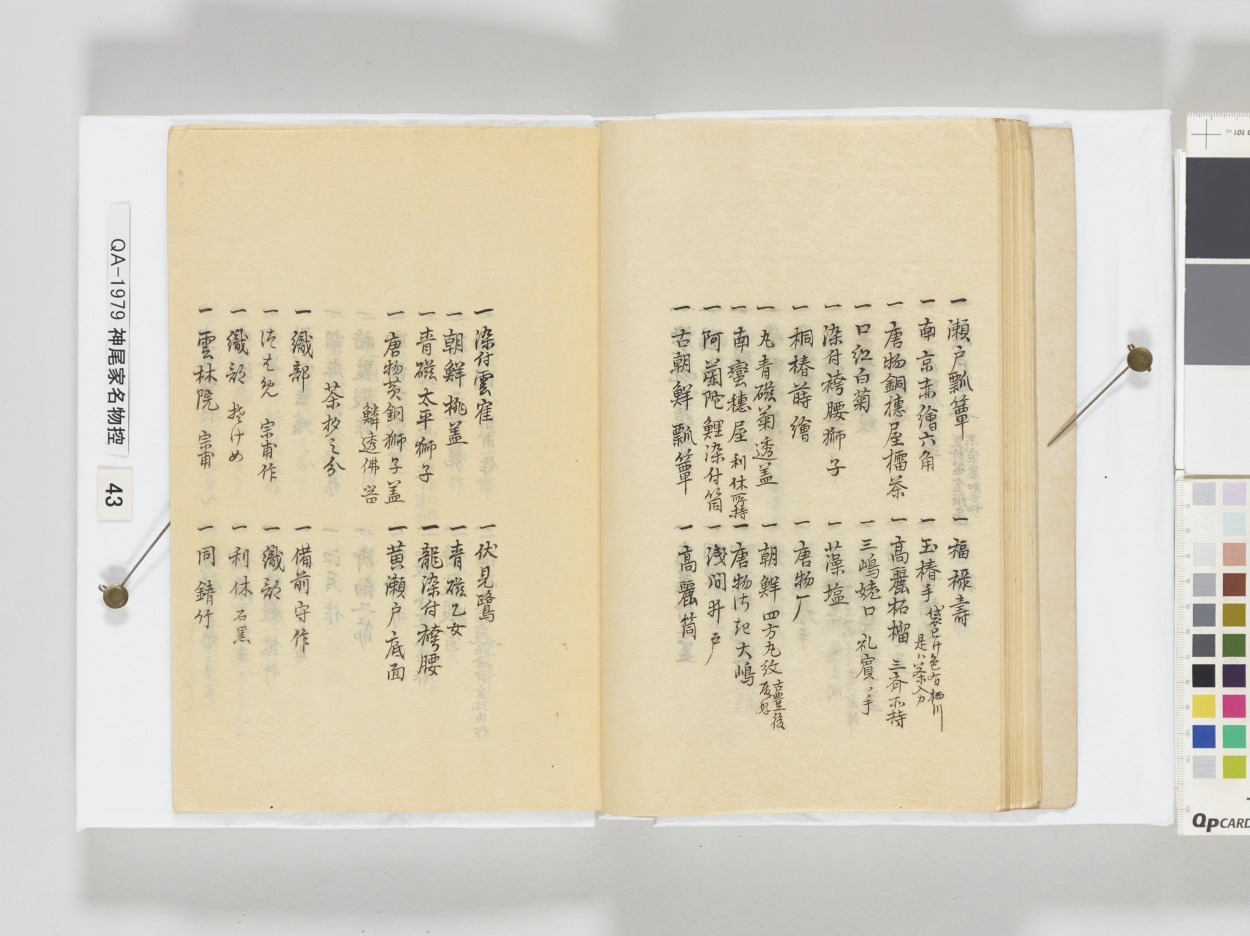 一 瀬戸瓢簞
一 福禄寿
一 南京赤繪六角
一 玉椿手 袋 色有栖川
是ハ茶入カ
一 唐物銅穂屋擂茶
一 高麗柘榴 三斉所持
一 口紅白菊
一 三嶋 口 礼賓ノ手
一 染付袴腰獅子
一 藻塩
一 桐椿蒔繪
一 唐物厂
一 丸青磁菊透盖
一 朝鮮 四方丸紋 古豊後
一 南蛮穂屋 利休所持
一 唐物 大嶋
一 阿蘭陀鯉染付筒
一 浅間井戸
一 古朝鮮瓢簞
一 高麗筒
一 染付雲雀
一 伏見鷺
一 朝鮮桃盖
一 青磁乙女
一 青磁太平獅子
一 龍染付袴腰
一 唐物黄銅獅子盖
鱗透佛器
一 黄瀬戸底面
茶杓之分
一 織部
一 備前守作
一 宗甫作
一 織部
一 織部 けめ
一 利休 石黒
一 雲林院 宗甫
一 同 錆竹
QA-1979 神尾家名物控
43
QPCARD